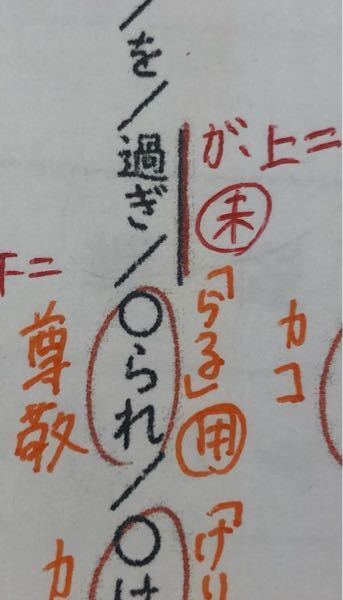 カコ
ガ、上二
未
「らる」用
「けり
／を／過ぎ／○られ／○け
下二
尊敬
カ